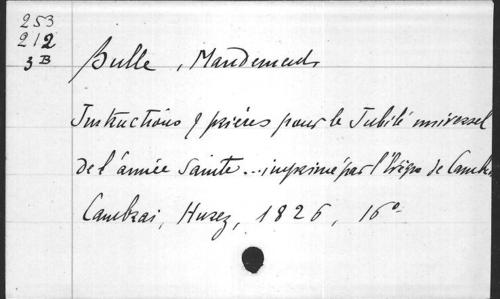 253
212
3 B
Bulle, Mandements
Instructions & prières pour le Jubilé universel
de l'année Sainte... imprimé par l'Évêque de Cambr
Cambrai, Hurez, 1826, 16º